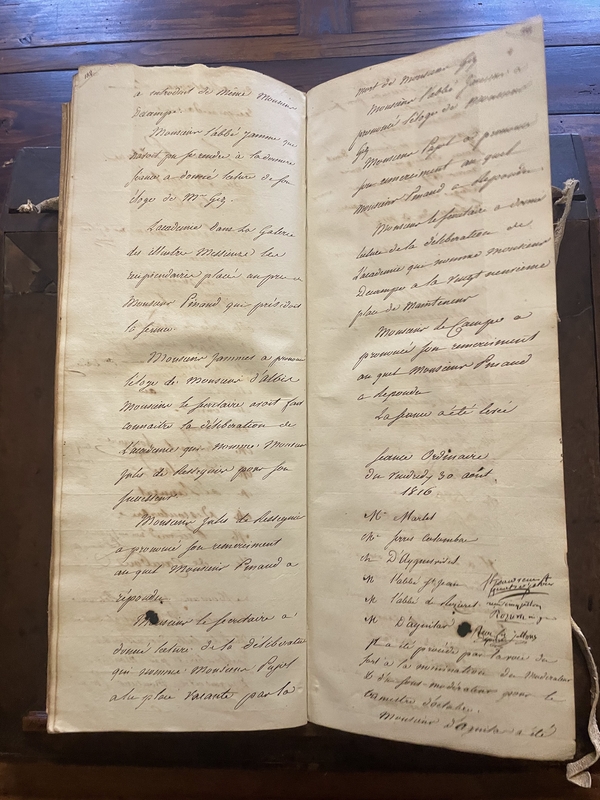 a introduit de même Monsieur
Decampe
Monsieur l'abbé Jamme qui
n'avoit pu se rendre à la derniere
séance a donné lecture de son
éloge de Mr Gez.
L'académie dans la Galerie
des illustres Messieurs les
recipiendaires placés au pres de
Monsieur Pinaud qui présidoit
la séance.
Monsieur Jammes a prononcé
l'éloge de Monsieur d'albis
Monsieur le secrétaire avoit fait
connaitre la déliberation de
L'academie qui nomme Monsieur
Jules de Resseguier pour son
successeur
Monsieur Jules de Resseguier
a prononcé son remerciment
au quel Monsieur Pinaud a
répondu.
Monsieur le secrétaire a
donné lecture de la déliberation
qui nomme Monsieur Pujol
a la place vacante par la
mort de Monsieur Gez
Monsieur l'abbé Jammes a
prononcé l'éloge de Monsieur
Gez
Monsieur Pujol a prononcé
son remerciment au quel
Monsieur Pinaud a répondu.
Monsieur le secrétaire a donné
lecture de la déliberation de
L'academie qui nomme Monsieur
Decampe a la vingt neuvieme
place de Mainteneur
Monsieur de Campe a
prononcé son remerciment
au quel Monsieur Pinaud
a répondu
La séance a été levée
séance Ordinaire
du vendredy 30 août
1816.
Mr Martet
Chr
Chr D'Ayguesvives
M l'abbé St jean
M l'abbé de
M D'Aguilar
Il a été procédé par la voie du
sort à la nomination du modérateur
& d'un sous-modérateur pour le
trimestre d'octobre.
Monsieur D'aguilar a été